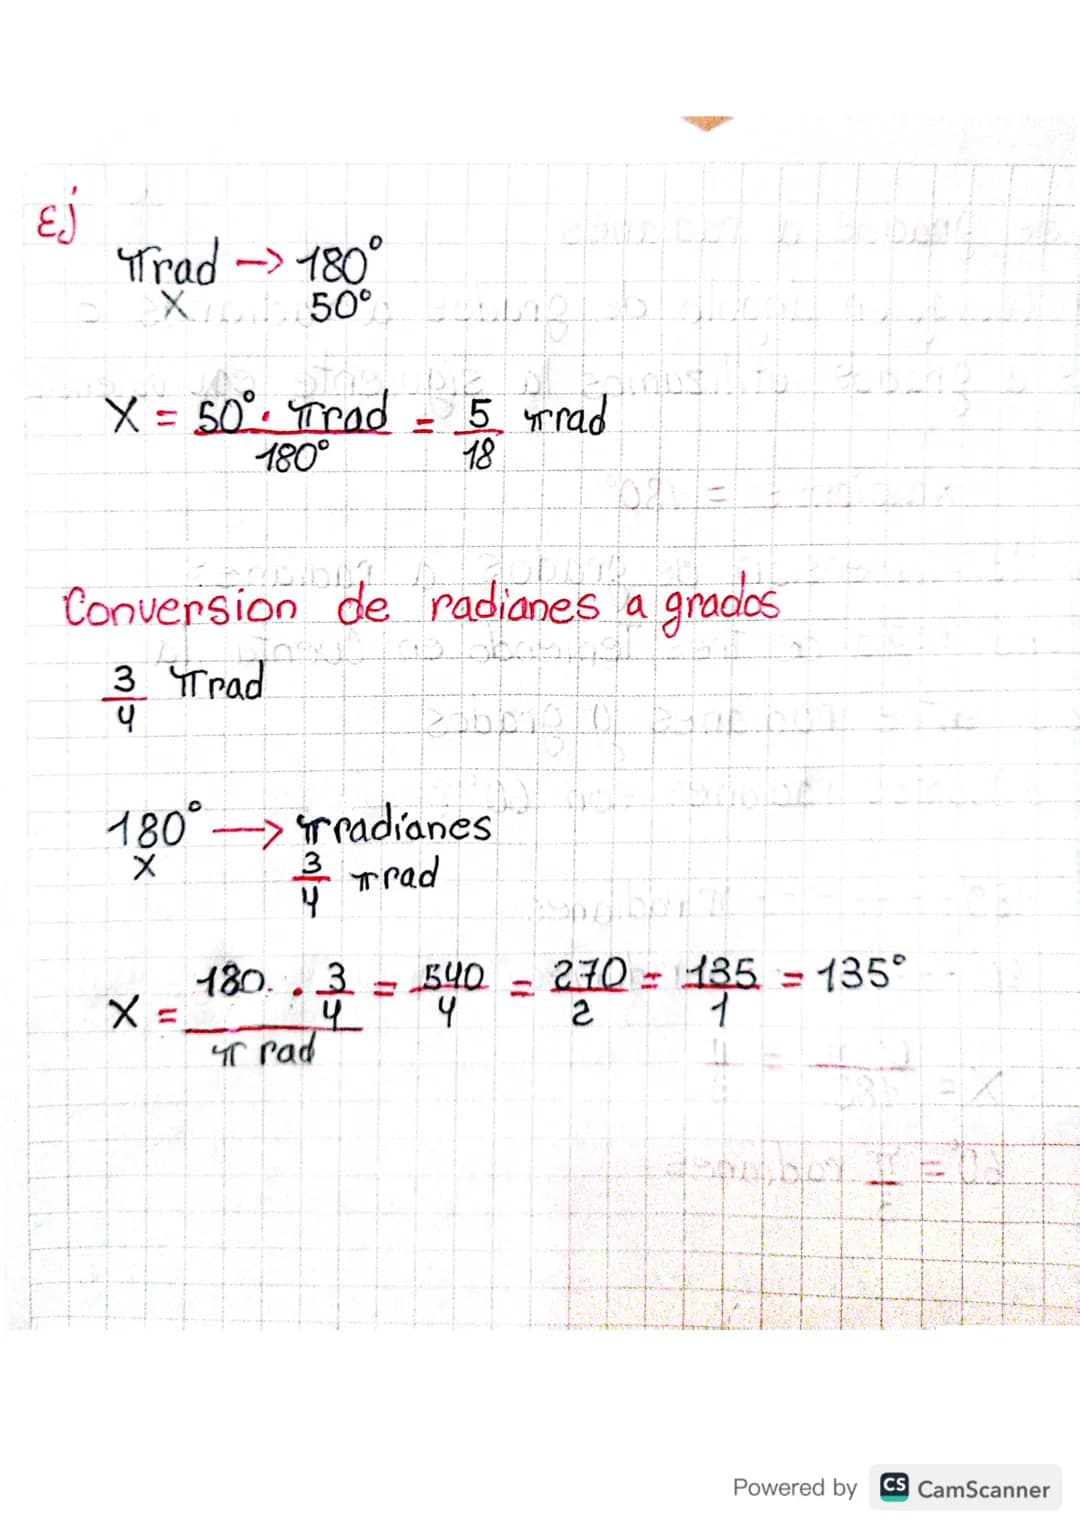 Ej
πrad -> 180°
X 50°
X = 50° · πrad / 180° = 5/18 πrad
Conversion de radianes a grados
3/4 πrad
180° -> πradianes
X 3/4 πrad
X = 180. · 3/4 / π rad = 540/4 = 270/2 = 135/1 = 135°
Powered by CS CamScanner